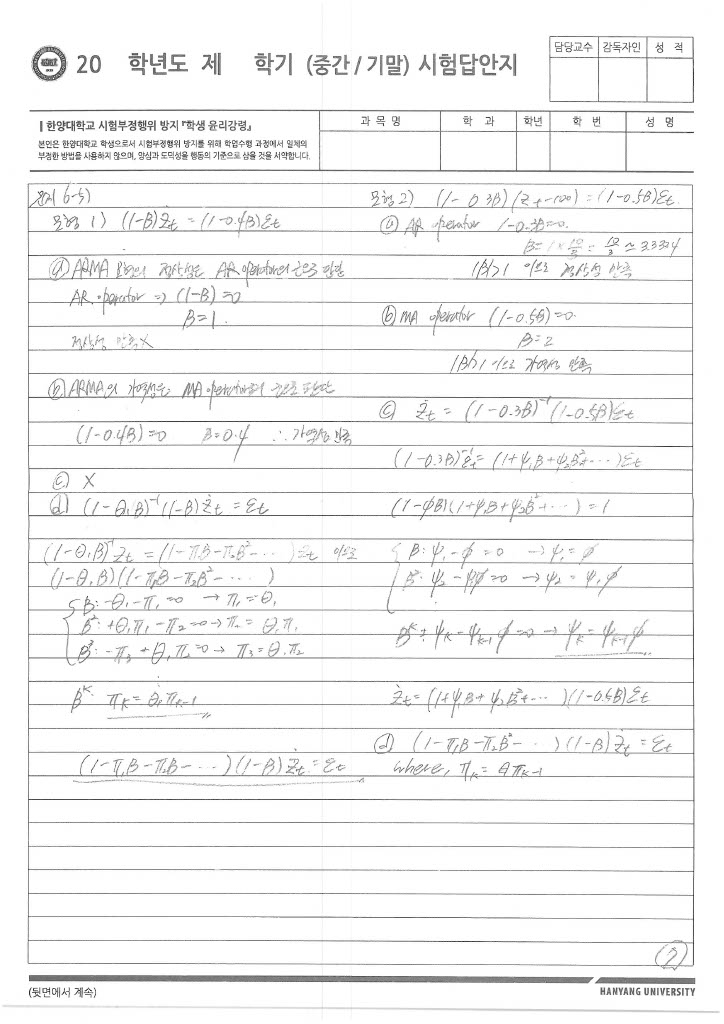 20 학년도 제 학기 (중간 / 기말) 시험답안지
담당교수 감독자인 성 적
┃한양대학교 시험부정행위 방지 『학생 윤리강령』
본인은 한양대학교 학생으로서 시험부정행위 방지를 위해 학업수행 과정에서 일체의
부정한 방법을 사용하지 않으며, 양심과 도덕성을 행동의 기준으로 삼을 것을 서약합니다.
과 목 명 학 과 학년 학 번 성 명
6-5)
모형 1) (1-B)Żt = (1-0.4B)εt
ⓐ ARMA 모형의 정상성은 AR operator의 근으로 판단
AR operator ⇒ (1-B)=0
B=1.
정상성 만족X
ⓑ ARMA의 가역성은 MA operator의 근으로 판단
(1-0.4B)=0 B=0.4 ∴ 가역성 만족
ⓒ X
ⓓ (1-θ₁B)⁻¹(1-B)Żt = εt
(1-θ₁B)⁻¹Zt = (1-π₁B-π₂B²-···)εt 이므로
(1-θ₁B)(1-π₁B-π₂B²-····)
B: -θ₁-π₁=0 → π₁=θ₁
B²: +θ₁π₁-π₂=0 → π₂=θ₁π₁
B³: -π₃+θ₁π₂=0 → π₃=θ₁π₂
Bᴷ: πK=θ₁πK-1
(1-π₁B-π₂B-···)(1-B)Żt=εt
모형 2) (1-0.3B)(Zt-100)=(1-0.5B)εt
ⓐ AR operator 1-0.3B=0.
B=1×10/3=10/3≈3.3334
|B|>1 이므로 정상성 만족
ⓑ MA operator (1-0.5B)=0.
B=2
|B|>1 이므로 가역성 만족
ⓒ Żt = (1-0.3B)⁻¹(1-0.5B)εt
(1-0.3B)⁻¹εt=(1+ψ₁B+ψ₂B²+···)εt
(1-φB)(1+ψ₁B+ψ₂B²+···)=1
B: ψ₁-φ=0 → ψ₁=φ
B²: ψ₂-ψ₁φ=0 → ψ₂=ψ₁φ
Bᴷ: ψK-ψK-1φ=0 → ψK=ψK-1φ
Żt=(1+ψ₁B+ψ₂B²+···)(1-0.5B)εt
ⓓ (1-π₁B-π₂B²-···)(1-B)Żt=εt
where, πK=θπK-1
(뒷면에서 계속)
HANYANG UNIVERSITY